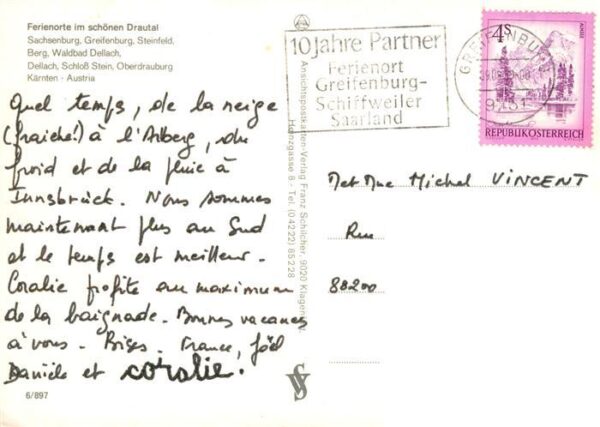 Ferienorte im schönen Drautal
Sachsenburg, Greifenburg, Steinfeld,
Berg, Waldbad Dellach,
Dellach, Schloß Stein, Oberdrauburg
Kärnten · Austria
Quel temps, de la neige
(fraiche!) à l'Arlberg, du
froid et de la pluie à
Innsbrück. Nous sommes
maintenant plus au Sud
et le temps est meilleur.
Coralie profite au maximum
de la baignade. Bonnes vacances
à vous. Bises. France, Joël
Danièle et coralie.
6/897
Ansichtspostkarten-Verlag Franz Schilcher, 9020 Klagenfurt
Heinzgasse 8 - Tel. (04222) 85228
10 Jahre Partner
Ferienort
Greifenburg-
Schiffweiler
Saarland
GREIFENBURG
4S
REPUBLIK ÖSTERREICH
M et Mme Michel VINCENT
Rue
88200